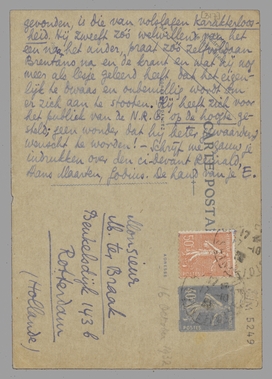 gevonden, is die van volslagen karakterloos-
heid. Hij zweeft zoo welwillend van het
een na het ander, praat zoo zelfvoldaan
Brentano na en de krant en wat hij nog
meer als leste geleerd heeft, dat het eigen-
lijk te dwaas en onbenullig wordt om
er zich aan te stooten. Hij heeft zich voor
het publiek van de N.R.C. op de hoogte ge-
steld; geen wonder dat hij beter gewaardeerd
wenscht te worden! — Schrijf me gauw je
indrukken over den ci-devant
Hans Maarten. Tobias. De hand van je E.
CARTE POSTALE
Monsieur
M. ter Braak
Beukelsdijk 143 b
Rotterdam
(Hollande)
POSTES